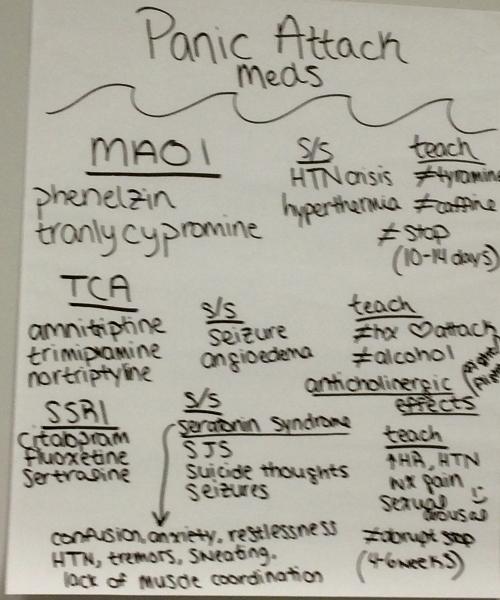 Panic Attack
meds
MAOI
phenelzin
tranlycypromine
S/S
HTN crisis
hyperthermia
teach
≠ tyramine
≠ caffine
≠ stop
(10-14 days)
TCA
amnitriptine
trimipramine
nortriptyline
S/S
seizure
angioedema
teach
≠ hx ♡ attach
≠ alcohol
anticholinergic
effects
SSRI
Citalopram
fluoxetine
Sertraline
S/S
seratonin syndrome
SJS
suicide thoughts
seizures
confusion, anxiety, restlessness
HTN, tremors, sweating.
lack of muscle coordination
teach
↑HA, HTN
pain
sexual
arousal
≠ abrupt stop
(4-6 weeks)